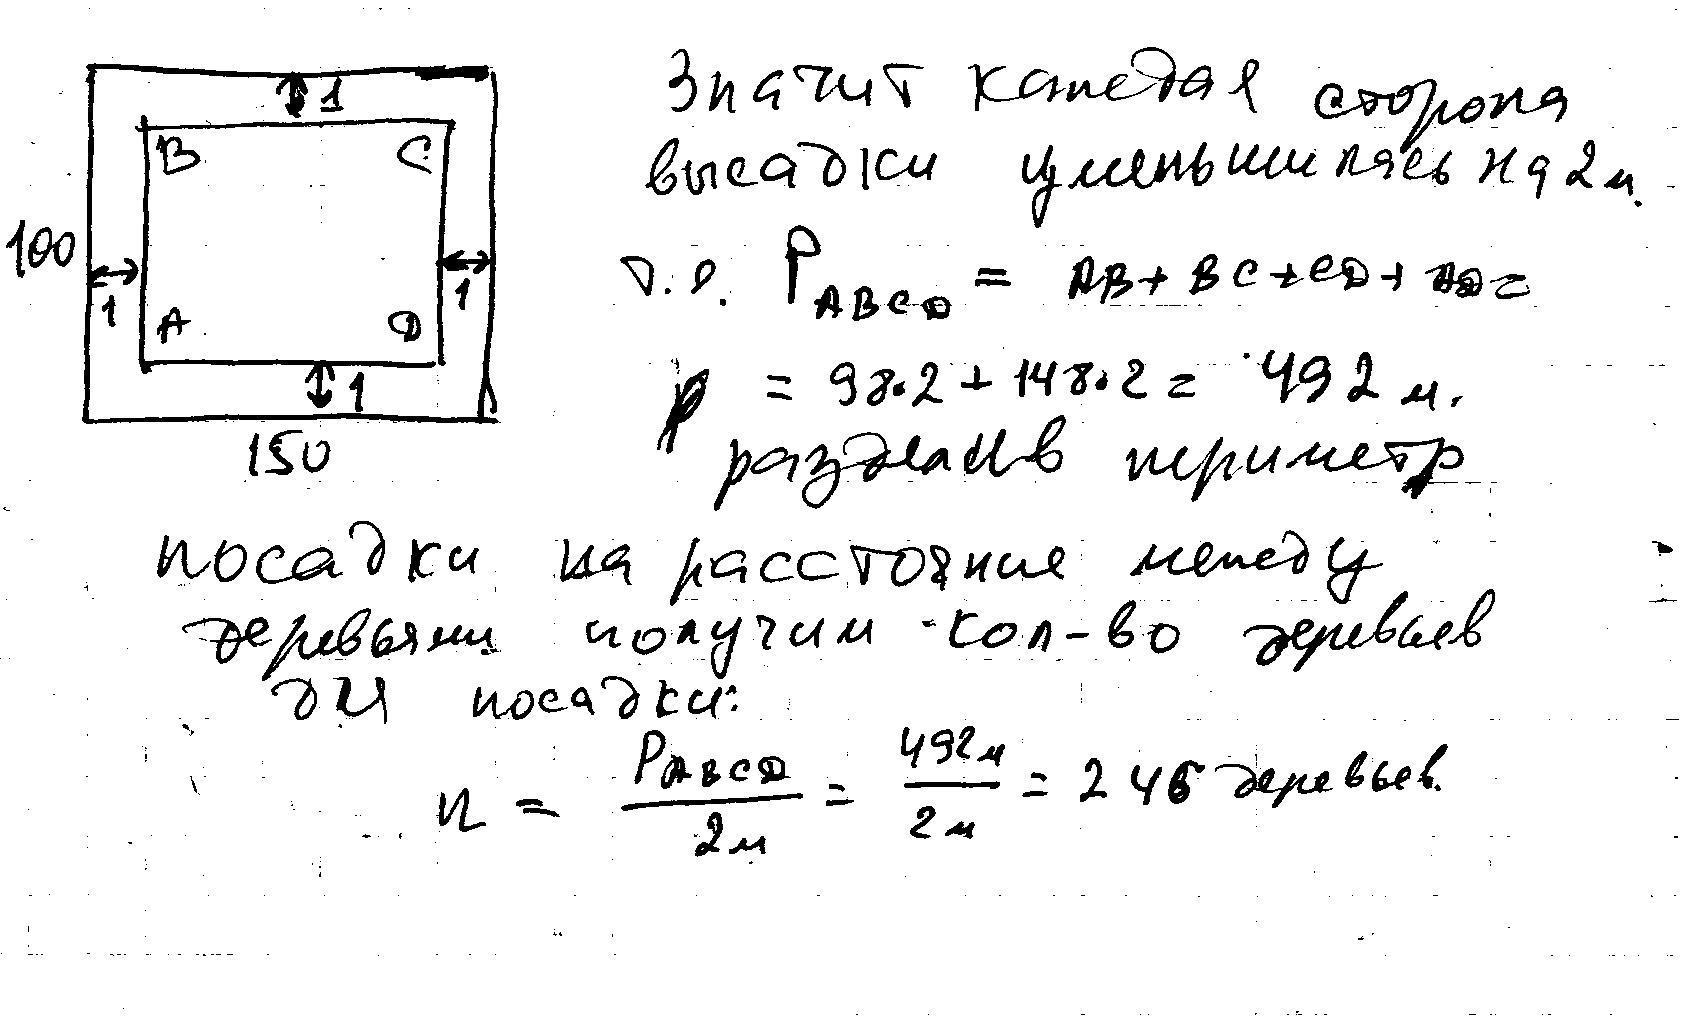 1
B C
100
1 1
A D
1
150
Значит каждая сторона
высадки уменьшилась на 2 м.
т.е. P ABCD = AB + BC + CD + AD =
P = 98·2 + 148·2 = 492 м.
разделив периметр
посадки на расстояние между
деревьями получим кол-во деревьев
для посадки:
n = P ABCD / 2м = 492м / 2м = 246 деревьев.